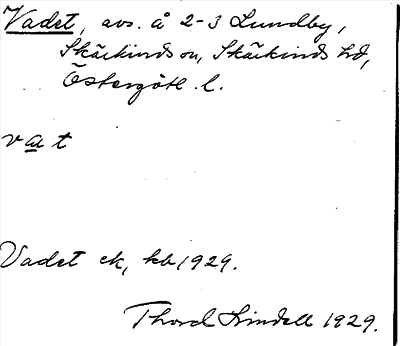 Vadet, avs. å 2-3 Lundby,
Skärkinds sn, Skärkinds hd,
Östergötl. l.
vat
Vadet ek, kb 1929.
Thord Lindell 1929.